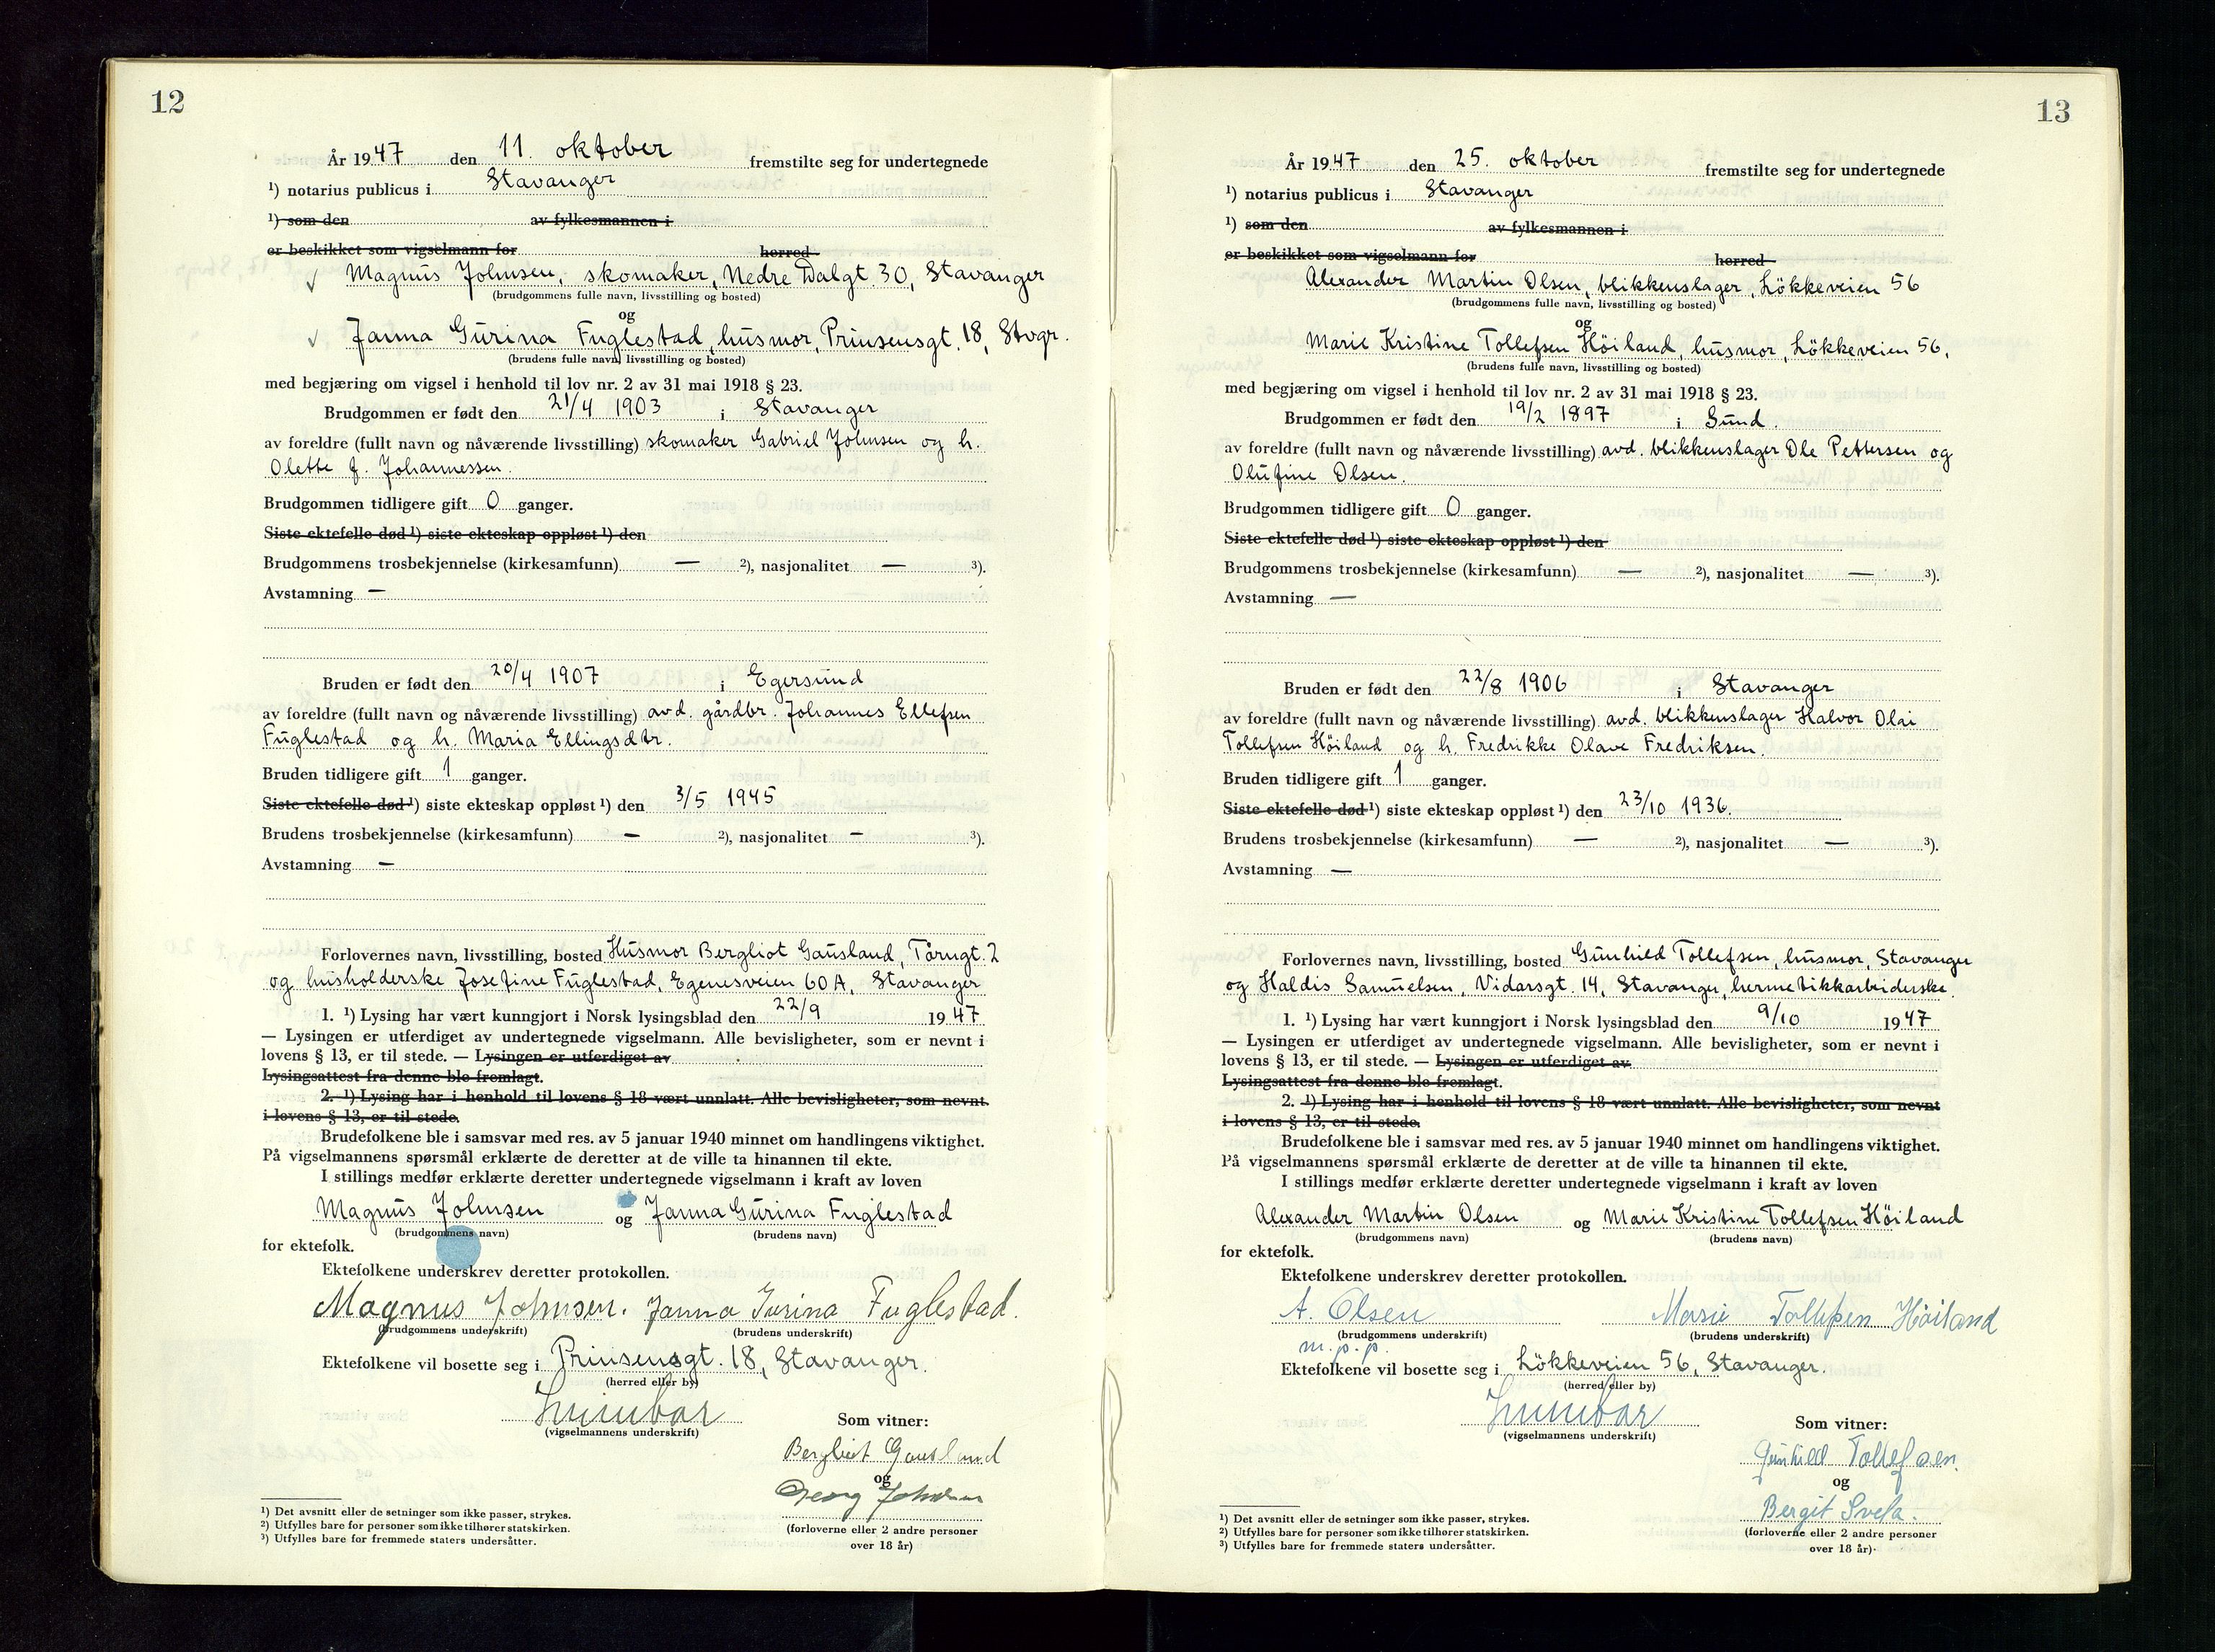 12
År 1947 den 11. oktober fremstilte seg for undertegnede
¹) notarius publicus i Stavanger
¹) som den av fylkesmannen i
er beskikket som vigselmann for herred
✓ Magnus Johnsen, skomaker, Nedre Dalgt. 30, Stavanger
(brudgommens fulle navn, livsstilling og bosted)
og
✓ Janna Gurina Fuglestad, husmor, Prinsensgt. 18, Stvgr.
(brudens fulle navn, livsstilling og bosted)
med begjæring om vigsel i henhold til lov nr. 2 av 31 mai 1918 § 23.
Brudgommen er født den 21/4 1903 i Stavanger
av foreldre (fullt navn og nåværende livsstilling) skomaker Gabriel Johnsen og h.
Olette f. Johannessen.
Brudgommen tidligere gift 0 ganger.
Siste ektefelle død ¹) siste ekteskap oppløst ¹) den
Brudgommens trosbekjennelse (kirkesamfunn) — ²), nasjonalitet — ³).
Avstamning —
Bruden er født den 20/4 1907 i Egersund
av foreldre (fullt navn og nåværende livsstilling) avd. gårdbr. Johannes Ellefsen
Fuglestad og h. Maria Ellingsdtr.
Bruden tidligere gift 1 ganger.
Siste ektefelle død ¹) siste ekteskap oppløst ¹) den 3/5 1945
Brudens trosbekjennelse (kirkesamfunn) — ²), nasjonalitet — ³).
Avstamning —
Forlovernes navn, livsstilling, bosted Husmor Bergliot Gausland, Tårngt. 2
og husholderske Josefine Fuglestad, Egenesveien 60A, Stavanger
1. ¹) Lysing har vært kunngjort i Norsk lysingsblad den 22/9 1947
— Lysingen er utferdiget av undertegnede vigselmann. Alle bevisligheter, som er nevnt i
lovens § 13, er til stede. — Lysingen er utferdiget av
Lysingsattest fra denne ble fremlagt.
2. ¹) Lysing har i henhold til lovens § 18 vært unnlatt. Alle bevisligheter, som nevnt
i lovens § 13, er til stede.
Brudefolkene ble i samsvar med res. av 5 januar 1940 minnet om handlingens viktighet.
På vigselmannens spørsmål erklærte de deretter at de ville ta hinannen til ekte.
I stillings medfør erklærte deretter undertegnede vigselmann i kraft av loven
Magnus Johnsen og Janna Gurina Fuglestad
(brudgommens navn) (brudens navn)
for ektefolk.
Ektefolkene underskrev deretter protokollen.
Magnus Johnsen. Janna Gurina Fuglestad.
(brudgommens underskrift) (brudens underskrift)
Ektefolkene vil bosette seg i Prinsensgt. 18, Stavanger.
(herred eller by)
(vigselmannens underskrift)
Som vitner:
Bergliot Gausland
og
Georg Johnsen
(forloverne eller 2 andre personer
over 18 år)
¹) Det avsnitt eller de setninger som ikke passer, strykes.
²) Utfylles bare for personer som ikke tilhører statskirken.
³) Utfylles bare for fremmede staters undersåtter.
13
År 1947 den 25. oktober fremstilte seg for undertegnede
¹) notarius publicus i Stavanger
¹) som den av fylkesmannen i
er beskikket som vigselmann for herred
Alexander Martin Olsen, blikkenslager, Lökkeveien 56
(brudgommens fulle navn, livsstilling og bosted)
og
Marie Kristine Tollefsen Höiland, husmor, Lökkeveien 56.
(brudens fulle navn, livsstilling og bosted)
med begjæring om vigsel i henhold til lov nr. 2 av 31 mai 1918 § 23.
Brudgommen er født den 19/2 1897 i Sund.
av foreldre (fullt navn og nåværende livsstilling) avd. blikkenslager Ole Pettersen og
Olufine Olsen.
Brudgommen tidligere gift 0 ganger.
Siste ektefelle død ¹) siste ekteskap oppløst ¹) den
Brudgommens trosbekjennelse (kirkesamfunn) — ²), nasjonalitet — ³).
Avstamning —
Bruden er født den 22/8 1906 i Stavanger
av foreldre (fullt navn og nåværende livsstilling) avd. blikkenslager Halvor Olai
Tollefsen Höiland og h. Fredrikke Olave Fredriksen.
Bruden tidligere gift 1 ganger.
Siste ektefelle død ¹) siste ekteskap oppløst ¹) den 23/10 1936.
Brudens trosbekjennelse (kirkesamfunn) — ²), nasjonalitet — ³).
Avstamning —
Forlovernes navn, livsstilling, bosted Gunhild Tollefsen, husmor, Stavanger
og Haldis Samuelsen, Vidarsgt. 14, Stavanger, hermetikkarbeiderske.
1. ¹) Lysing har vært kunngjort i Norsk lysingsblad den 9/10 1947
— Lysingen er utferdiget av undertegnede vigselmann. Alle bevisligheter, som er nevnt i
lovens § 13, er til stede. — Lysingen er utferdiget av
Lysingsattest fra denne ble fremlagt.
2. ¹) Lysing har i henhold til lovens § 18 vært unnlatt. Alle bevisligheter, som nevnt
i lovens § 13, er til stede.
Brudefolkene ble i samsvar med res. av 5 januar 1940 minnet om handlingens viktighet.
På vigselmannens spørsmål erklærte de deretter at de ville ta hinannen til ekte.
I stillings medfør erklærte deretter undertegnede vigselmann i kraft av loven
Alexander Martin Olsen og Marie Kristine Tollefsen Höiland
(brudgommens navn) (brudens navn)
for ektefolk.
Ektefolkene underskrev deretter protokollen.
A. Olsen Marie Tollefsen Höiland
(brudgommens underskrift) (brudens underskrift)
m. p. p.
Ektefolkene vil bosette seg i Lökkeveien 56, Stavanger.
(herred eller by)
(vigselmannens underskrift)
Som vitner:
Gunhild Tollefsen.
og
Bergit Svela.
(forloverne eller 2 andre personer
over 18 år)
¹) Det avsnitt eller de setninger som ikke passer, strykes.
²) Utfylles bare for personer som ikke tilhører statskirken.
³) Utfylles bare for fremmede staters undersåtter.